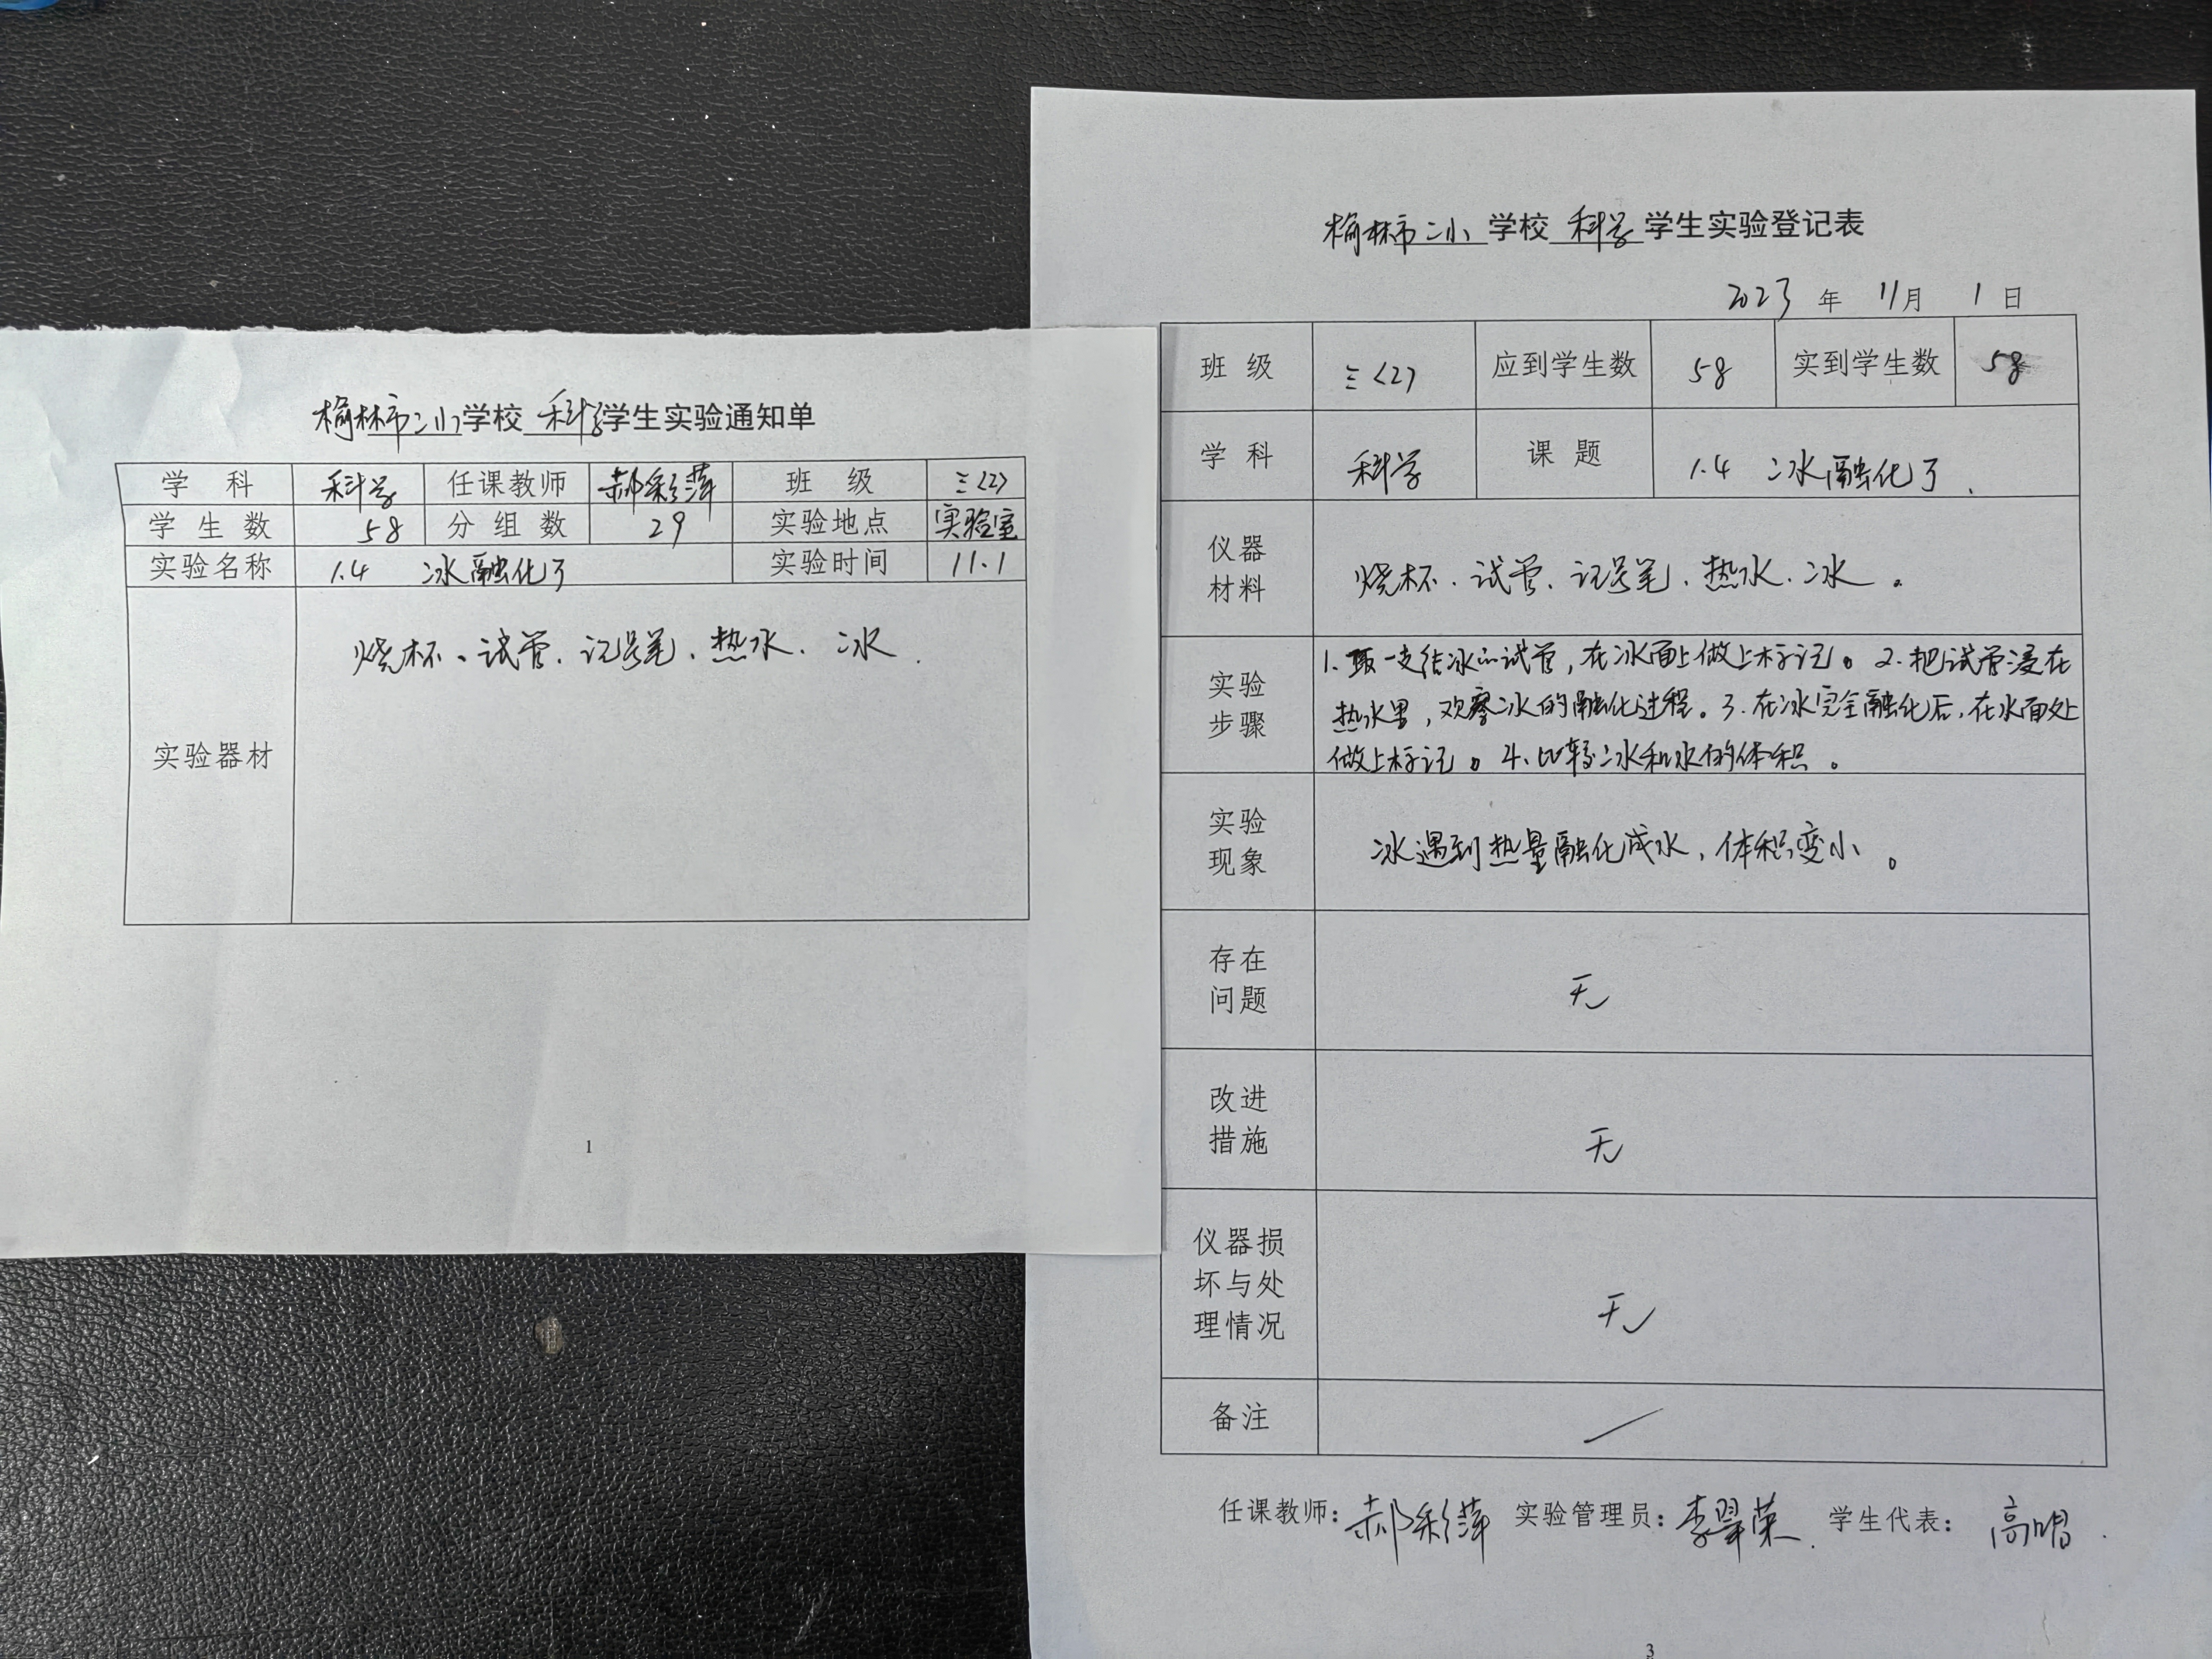 榆林市二小学校 科学学生实验通知单
学 科 科学 任课教师 郝彩萍 班 级 三(2)
学 生 数 58 分 组 数 29 实验地点 实验室
实验名称 1.4 冰融化了 实验时间 11.1
实验器材 烧杯、试管、记号笔、热水、冰.
1
榆林市二小 学校 科学 学生实验登记表
2023 年 11月 1 日
班 级 三(2) 应到学生数 58 实到学生数 58
学 科 科学 课 题 1.4 冰融化了.
仪器
材料
烧杯、试管、记号笔、热水、冰。
实验
步骤
1.取一支结冰的试管,在冰面上做上标记。2.把试管浸在
热水里,观察冰的融化过程。3.在冰完全融化后,在水面处
做上标记。4.比较冰和水的体积。
实验
现象
冰遇到热量融化成水,体积变小。
存在
问题
无
改进
措施
无
仪器损
坏与处
理情况
无
备注
任课教师:郝彩萍 实验管理员:李翠荣. 学生代表:
3